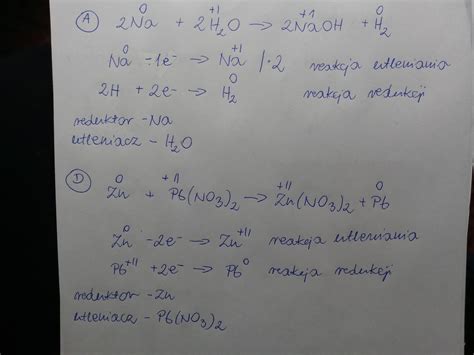 (A) 2Na⁰ + 2H₂⁺¹O → 2Na⁺¹OH + H₂⁰
Na⁰ -1e⁻ → Na⁺¹ /·2 reakcja utleniania
2H + 2e⁻ → H₂⁰ reakcja redukcji
reduktor - Na
utleniacz - H₂O
(D) Zn⁰ + Pb⁺ᴵᴵ(NO₃)₂ → Zn⁺ᴵᴵ(NO₃)₂ + Pb⁰
Zn⁰ -2e⁻ → Zn⁺ᴵᴵ reakcja utleniania
Pb⁺ᴵᴵ +2e⁻ → Pb⁰ reakcja redukcji
reduktor - Zn
utleniacz - Pb(NO₃)₂